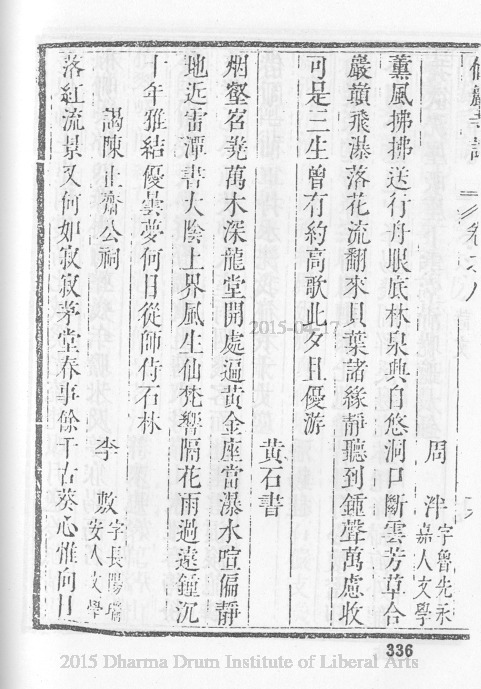 卷之八
周　泮 字魯先永
嘉人文學
薰風拂拂送行舟眼底林泉興自悠洞口斷雲芳草合
巖巔飛瀑落花流翻來貝葉諸緣靜聽到鍾聲萬慮收
可是三生曾有約高歌此夕且優游
黃石書
烟壑岧嶤萬木深龍堂開處遍黃金座當瀑水喧偏靜
地近雷潭書大陰上界風生仙梵響隔花雨過遠鍾沉
十年雅結優曇夢何日從師侍石林
謁陳止齋公祠
李　敷 字長陽瑞
安人文學
落紅流景又何如寂寂茅堂春事餘千古葵心惟向日
2015-04-17
336
2015 Dharma Drum Institute of Liberal Arts